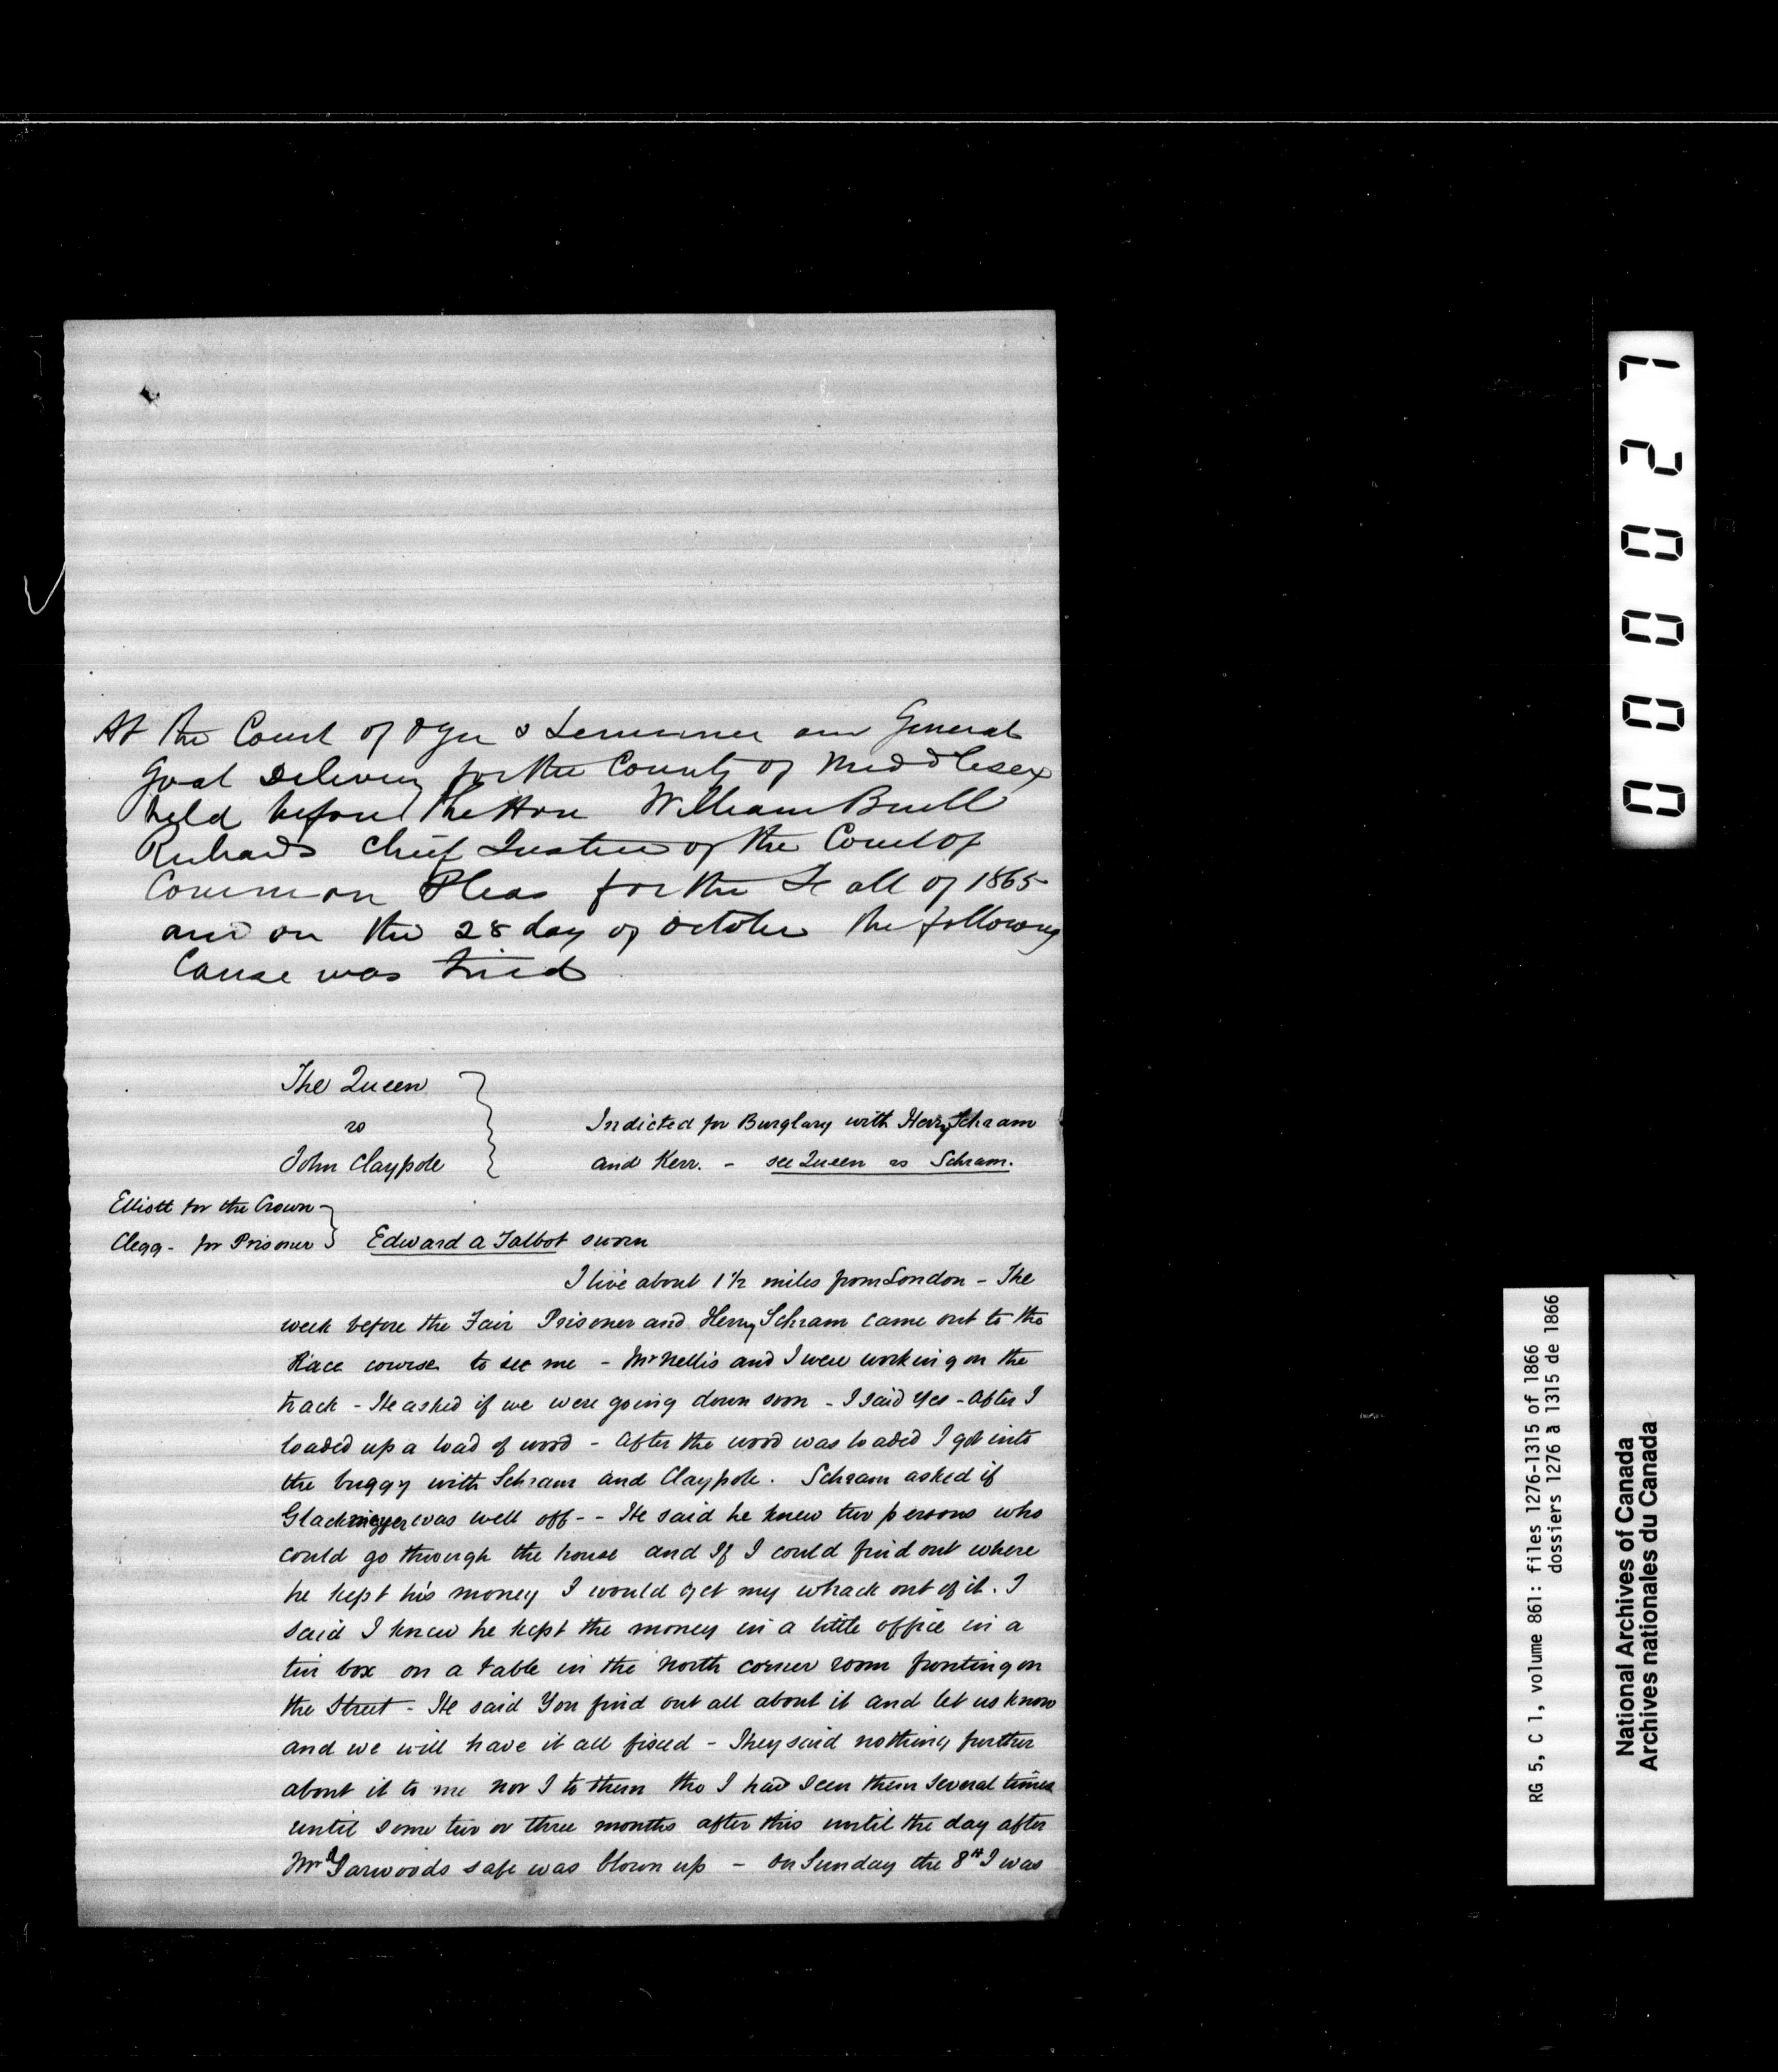 At the Court of Oyer & Terminer and General
Goal Delivery for the County of Middlesex
held before the Hon William Buell
Richards Chief Justice of the Court of
Common Pleas for the Fall of 1865
and on the 28 day of October the following
Cause was tried
The Queen
vs
John Claypole
Indicted for Burglary with Henry Schram
and Kerr. - see Queen vs Schram.
Elliott for the Crown
Clegg - for Prisoner
Edward A Talbot sworn
I live about 1 1/2 miles from London - The
week before the Fair Prisoner and Henry Schram came out to the
Race course to see me - Mr Nellis and I were working on the
track - He asked if we were going down soon - I said Yes - After I
loaded up a load of wood - After the wood was loaded I got into
the buggy with Schram and Claypole. Schram asked if
Glackmeyer was well off - - He said he knew two persons who
could go through the house and If I could find out where
he kept his money I would get my whack out of it. I
said I knew he kept the money in a little office in a
tin box on a table in the North corner room fronting on
the Street - He said You find out all about it and let us know
and we will have it all fixed - They said nothing further
about it to me nor I to them tho I had seen them several times
until some two or three months after this until the day after
Mr Garwoods safe was blown up - On Sunday the 8th I was
000027
RG 5, C 1, volume 861: files 1276-1315 of 1866
dossiers 1276 à 1315 de 1866
National Archives of Canada
Archives nationales du Canada